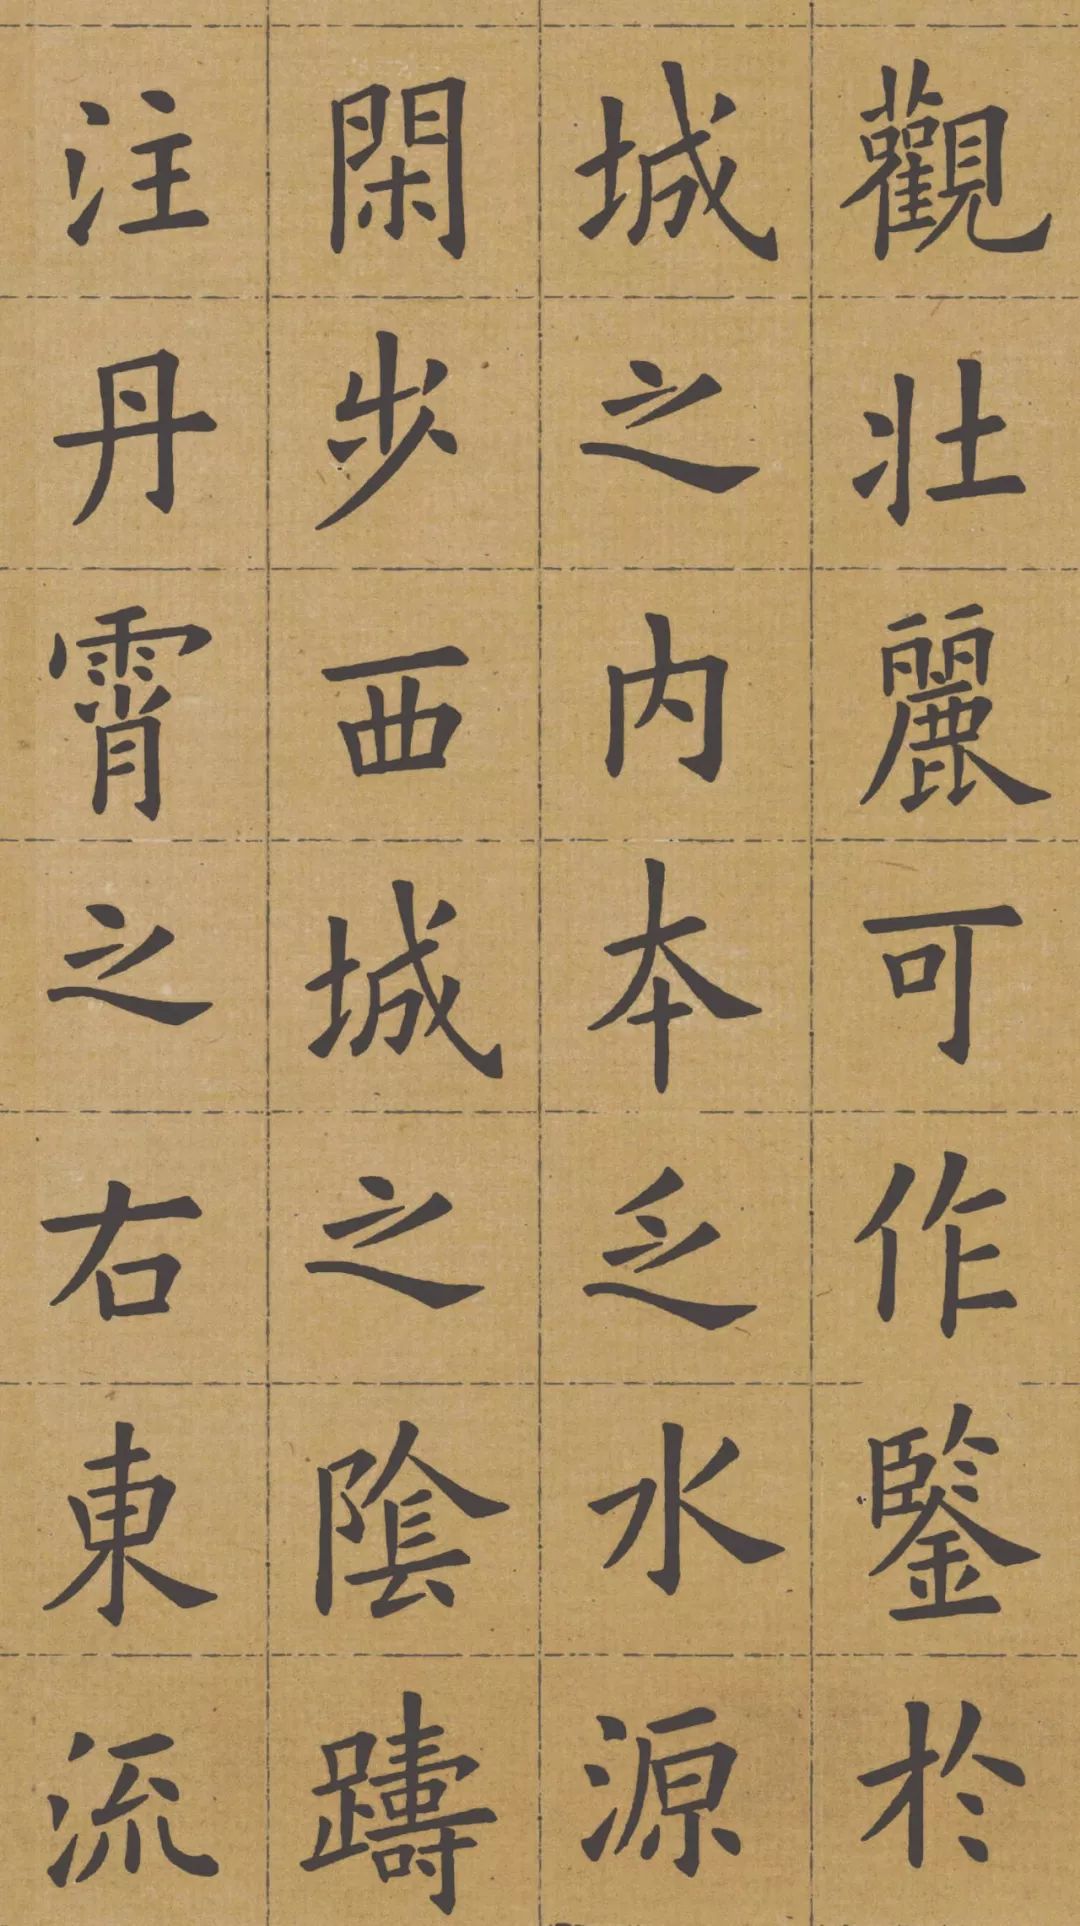 觀壯麗可作鍳於
城之内本乏水源
閑步西城之陰躊
注丹霄之右東流